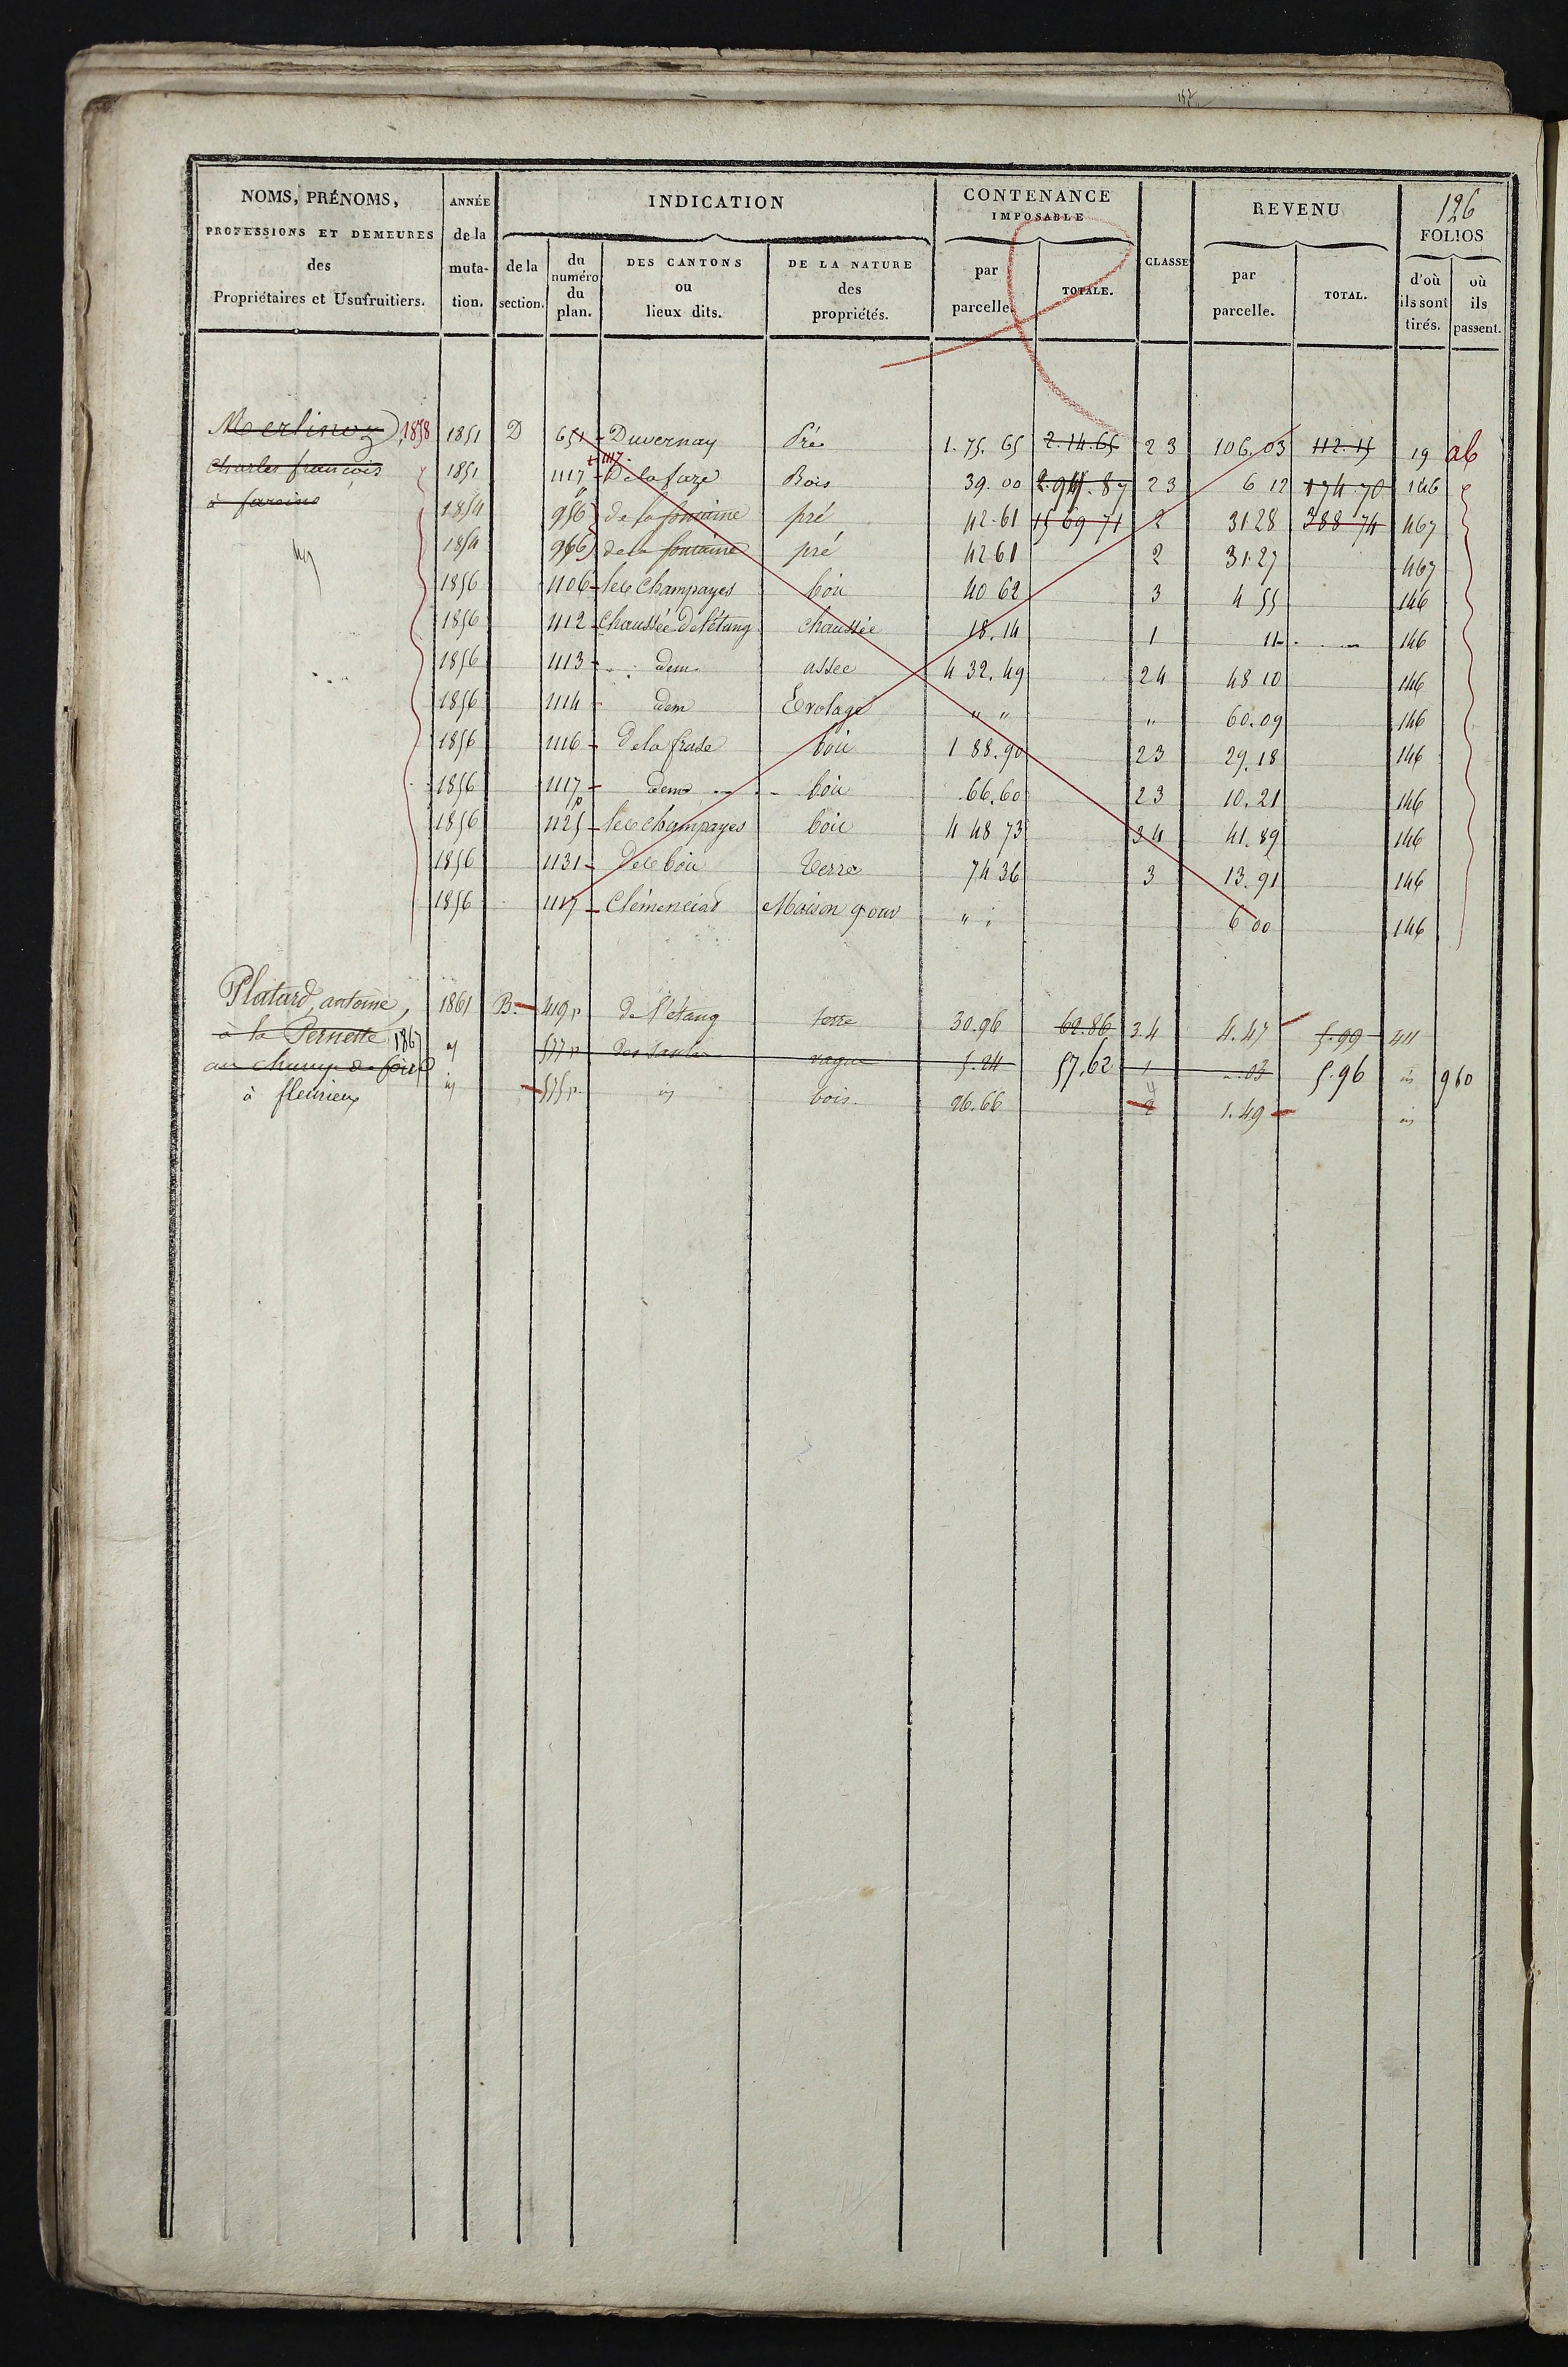 157
126
NOMS, PRÉNOMS, PROFESSIONS ET DEMEURES des Propriétaires et Usufruitiers.
ANNÉE de la muta- tion.
INDICATION
de la section.
du numéro du plan.
DES CANTONS ou lieux dits.
DE LA NATURE des propriétés.
CONTENANCE IMPOSABLE
par parcelle.
TOTALE.
CLASSE
REVENU
par parcelle.
TOTAL.
FOLIOS
d'où ils sont tirés.
où ils passent.
Merlinoz 1858 1851 D 651 Duvernay Pré 1.75.65 2.14.65 23 106.03 112.15 19 ab
+ 1117
Charles françois 1851 1117 De la faze Bois 39.00 87 23 6 12 174.70 146
à fareins 1854 956 de la fontaine pré 42.61 15 69 71 2 31.28 388 74 467
1854 966 de la fontaine pré 42 61 2 31.27 467
1856 1106 les Champayes bois 40 62 3 4 55 146
1856 1112 Chaussée De l'étang Chaussée 18.14 1 11 146
1856 1113 dem assec 4 32.49 24 48 10 146
1856 1114 dem Evolage " " " 60.09 146
1856 1116 De la frase bois 1 88.90 23 29.18 146
1856 1117 p dem bois 66.60 23 10.21 146
1856 1125 les Champayes bois 4 48 73 34 41.89 146
1856 1131 Des bois Terre 74 36 3 13.91 146
1856 1117 Clémenciat Maison g our " " 6 00 146
Platard, antoine, 1861 B. 419 p De l'étang terre 30.96 62.86 3.4 4.47 5.99 411
à la Pernette 1867 577 p vague 5.24 57.62 1 .03 5.96 id 960
au champ de foire id 575 p id bois 26.66 2 1.49 id
à fleurieux